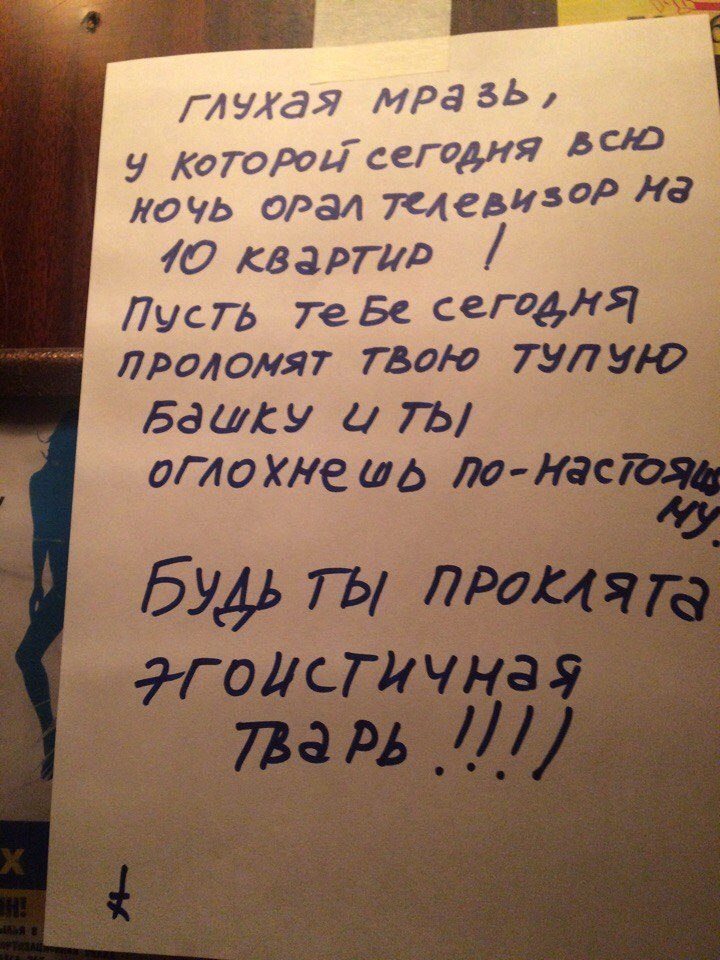 глухая мразь,
у которой сегодня всю
ночь орал телевизор на
10 квартир !
Пусть тебе сегодня
проломят твою тупую
башку и ты
оглохнешь по-настояще
му.
Будь ты проклята
эгоистичная
тварь !!!!
Х
Н!